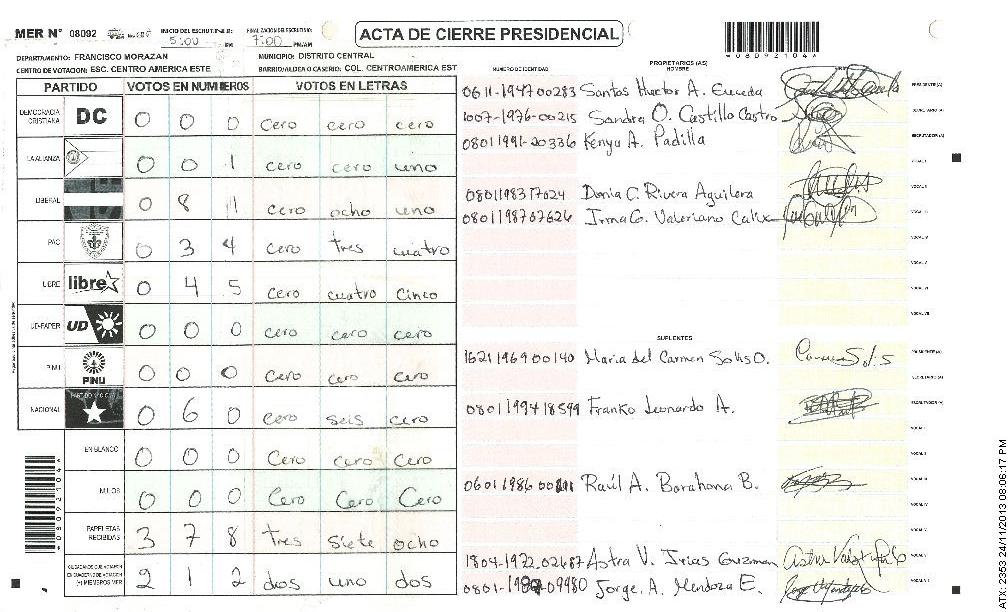 MER N° 08092 INICIO DEL ESCRUTINIO: 5:00 PM FINALIZACION DEL ESCRUTINIO: 7:00 PM/AM ACTA DE CIERRE PRESIDENCIAL
*08092104*
DEPARTAMENTO: FRANCISCO MORAZAN MUNICIPIO: DISTRITO CENTRAL
CENTRO DE VOTACION: ESC. CENTRO AMERICA ESTE BARRIO/ALDEA O CASERIO: COL. CENTROAMERICA EST
PARTIDO VOTOS EN NUMEROS VOTOS EN LETRAS
DEMOCRACIA CRISTIANA DC 0 0 0 Cero cero cero
LA ALIANZA 0 0 1 cero cero uno
LIBERAL 0 8 1 cero ocho uno
PAC 0 3 4 cero tres cuatro
LIBRE libre 0 4 5 cero cuatro cinco
UD-FAPER UD 0 0 0 cero cero cero
PINU PINU 0 0 0 cero cero cero
NACIONAL 0 6 0 cero seis cero
EN BLANCO 0 0 0 Cero cero cero
NULOS 0 0 0 Cero Cero Cero
PAPELETAS RECIBIDAS 3 7 8 tres siete ocho
CIUDADANOS QUE VOTARON EN CUADERNO DE VOTACION (+) MIEMBROS MER 2 1 2 dos uno dos
*08092104*
NUMERO DE IDENTIDAD PROPIETARIOS (AS) NOMBRE
0611-1947 00283 Santos Hector A. Euceda PRESIDENTE (A)
1007-1976-00215 Sandra O. Castillo Castro SECRETARIO (A)
08011991-20336 Kenya A. Padilla ESCRUTADOR (A)
VOCAL I
0801198317024 Dania C. Rivera Aguilera VOCAL II
0801198707626 Irma G. Valeriano Calix VOCAL III
VOCAL IV
VOCAL V
VOCAL VI
VOCAL VII
SUPLENTES
16211969 00140 Maria del Carmen Solis O. PRESIDENTE (A)
SECRETARIO (A)
0801199418599 Franko Leonardo A. ESCRUTADOR (A)
VOCAL I
VOCAL II
0601 1986 Raúl A. Barahona B. VOCAL III
VOCAL IV
VOCAL V
1804-1972.02687 Astra V. Irias Guzman VOCAL VI
0801- 09980 Jorge. A. Mendoza E. VOCAL VII
24/11/2013 08:06:17 PM